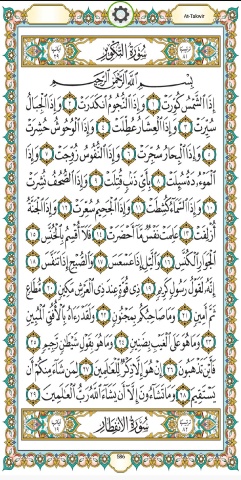 At-Takwir
سُورَةُ التَّكْوِيرِ
بِسْمِ اللَّهِ الرَّحْمَٰنِ الرَّحِيمِ
إِذَا الشَّمْسُ كُوِّرَتْ ١ وَإِذَا النُّجُومُ انْكَدَرَتْ ٢ وَإِذَا الْجِبَالُ
سُيِّرَتْ ٣ وَإِذَا الْعِشَارُ عُطِّلَتْ ٤ وَإِذَا الْوُحُوشُ حُشِرَتْ
٥ وَإِذَا الْبِحَارُ سُجِّرَتْ ٦ وَإِذَا النُّفُوسُ زُوِّجَتْ ٧ وَإِذَا
الْمَوْءُودَةُ سُئِلَتْ ٨ بِأَيِّ ذَنْبٍ قُتِلَتْ ٩ وَإِذَا الصُّحُفُ نُشِرَتْ
١٠ وَإِذَا السَّمَاءُ كُشِطَتْ ١١ وَإِذَا الْجَحِيمُ سُعِّرَتْ ١٢ وَإِذَا الْجَنَّةُ
أُزْلِفَتْ ١٣ عَلِمَتْ نَفْسٌ مَا أَحْضَرَتْ ١٤ فَلَا أُقْسِمُ بِالْخُنَّسِ ١٥
الْجَوَارِ الْكُنَّسِ ١٦ وَاللَّيْلِ إِذَا عَسْعَسَ ١٧ وَالصُّبْحِ إِذَا تَنَفَّسَ ١٨
إِنَّهُ لَقَوْلُ رَسُولٍ كَرِيمٍ ١٩ ذِي قُوَّةٍ عِنْدَ ذِي الْعَرْشِ مَكِينٍ ٢٠ مُطَاعٍ
ثَمَّ أَمِينٍ ٢١ وَمَا صَاحِبُكُمْ بِمَجْنُونٍ ٢٢ وَلَقَدْ رَآهُ بِالْأُفُقِ الْمُبِينِ
٢٣ وَمَا هُوَ عَلَى الْغَيْبِ بِضَنِينٍ ٢٤ وَمَا هُوَ بِقَوْلِ شَيْطَانٍ رَجِيمٍ ٢٥
فَأَيْنَ تَذْهَبُونَ ٢٦ إِنْ هُوَ إِلَّا ذِكْرٌ لِلْعَالَمِينَ ٢٧ لِمَنْ شَاءَ مِنْكُمْ أَنْ
يَسْتَقِيمَ ٢٨ وَمَا تَشَاءُونَ إِلَّا أَنْ يَشَاءَ اللَّهُ رَبُّ الْعَالَمِينَ ٢٩
سُورَةُ الِانْفِطَارِ
586